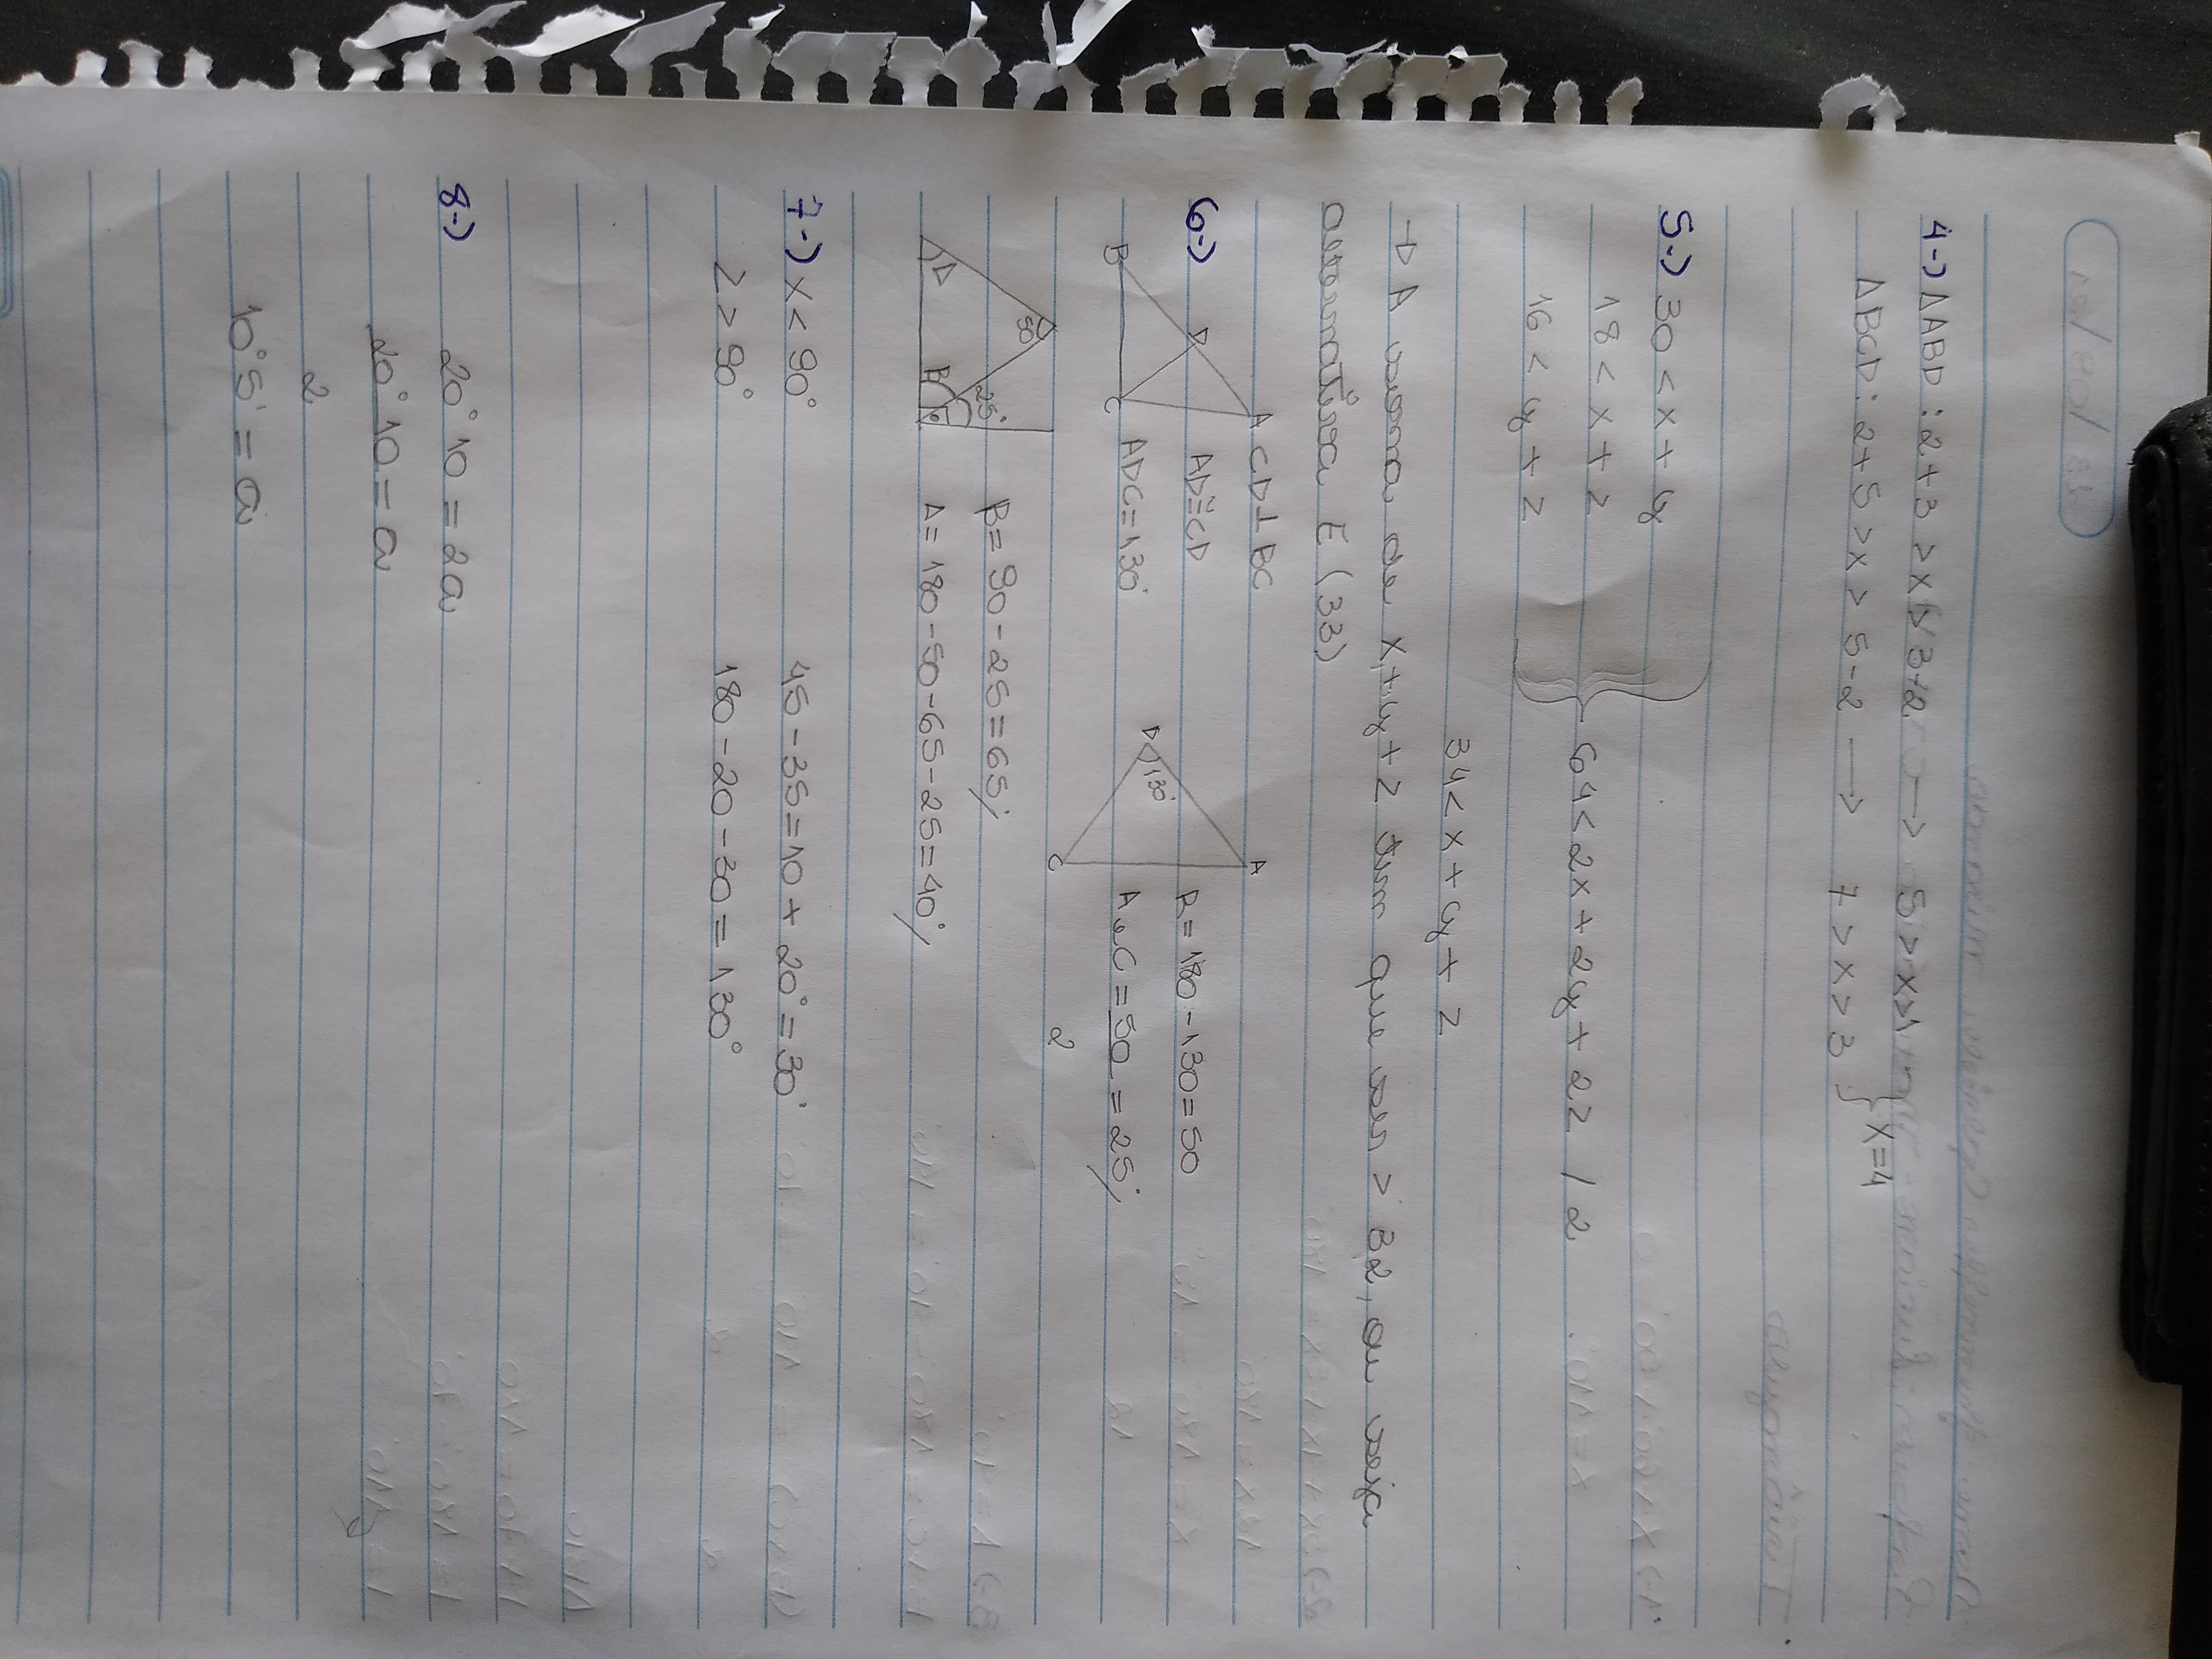 4-) ΔABD: 2+3 > x > 3-2 → 5 > x > 1
ΔBCD: 2+5 > x > 5-2 → 7 > x > 3 } x=4
5-) 30 < x + y
18 < x + z
16 < y + z
64 < 2x + 2y + 2z / 2
34 < x + y + z
→ A soma de x+y+z tem que ser > 32, ou seja
alternativa E (33)
6-)
A
B
C
D
CD⊥BC
AD≅CD
ADC=130°
A
D
C
130°
R = 180 - 130 = 50
A e C = 50 = 25°
2
50
25°
B
D
B = 90 - 25 = 65°
Δ = 180 - 50 - 65 - 25 = 40°
7-) x < 90°
2 > 90°
45 - 35 = 10 + 20° = 30°
180 - 20 - 30 = 130°
8-)
20° 10 = 2a
20° 10 = a
2
10° 5' = a